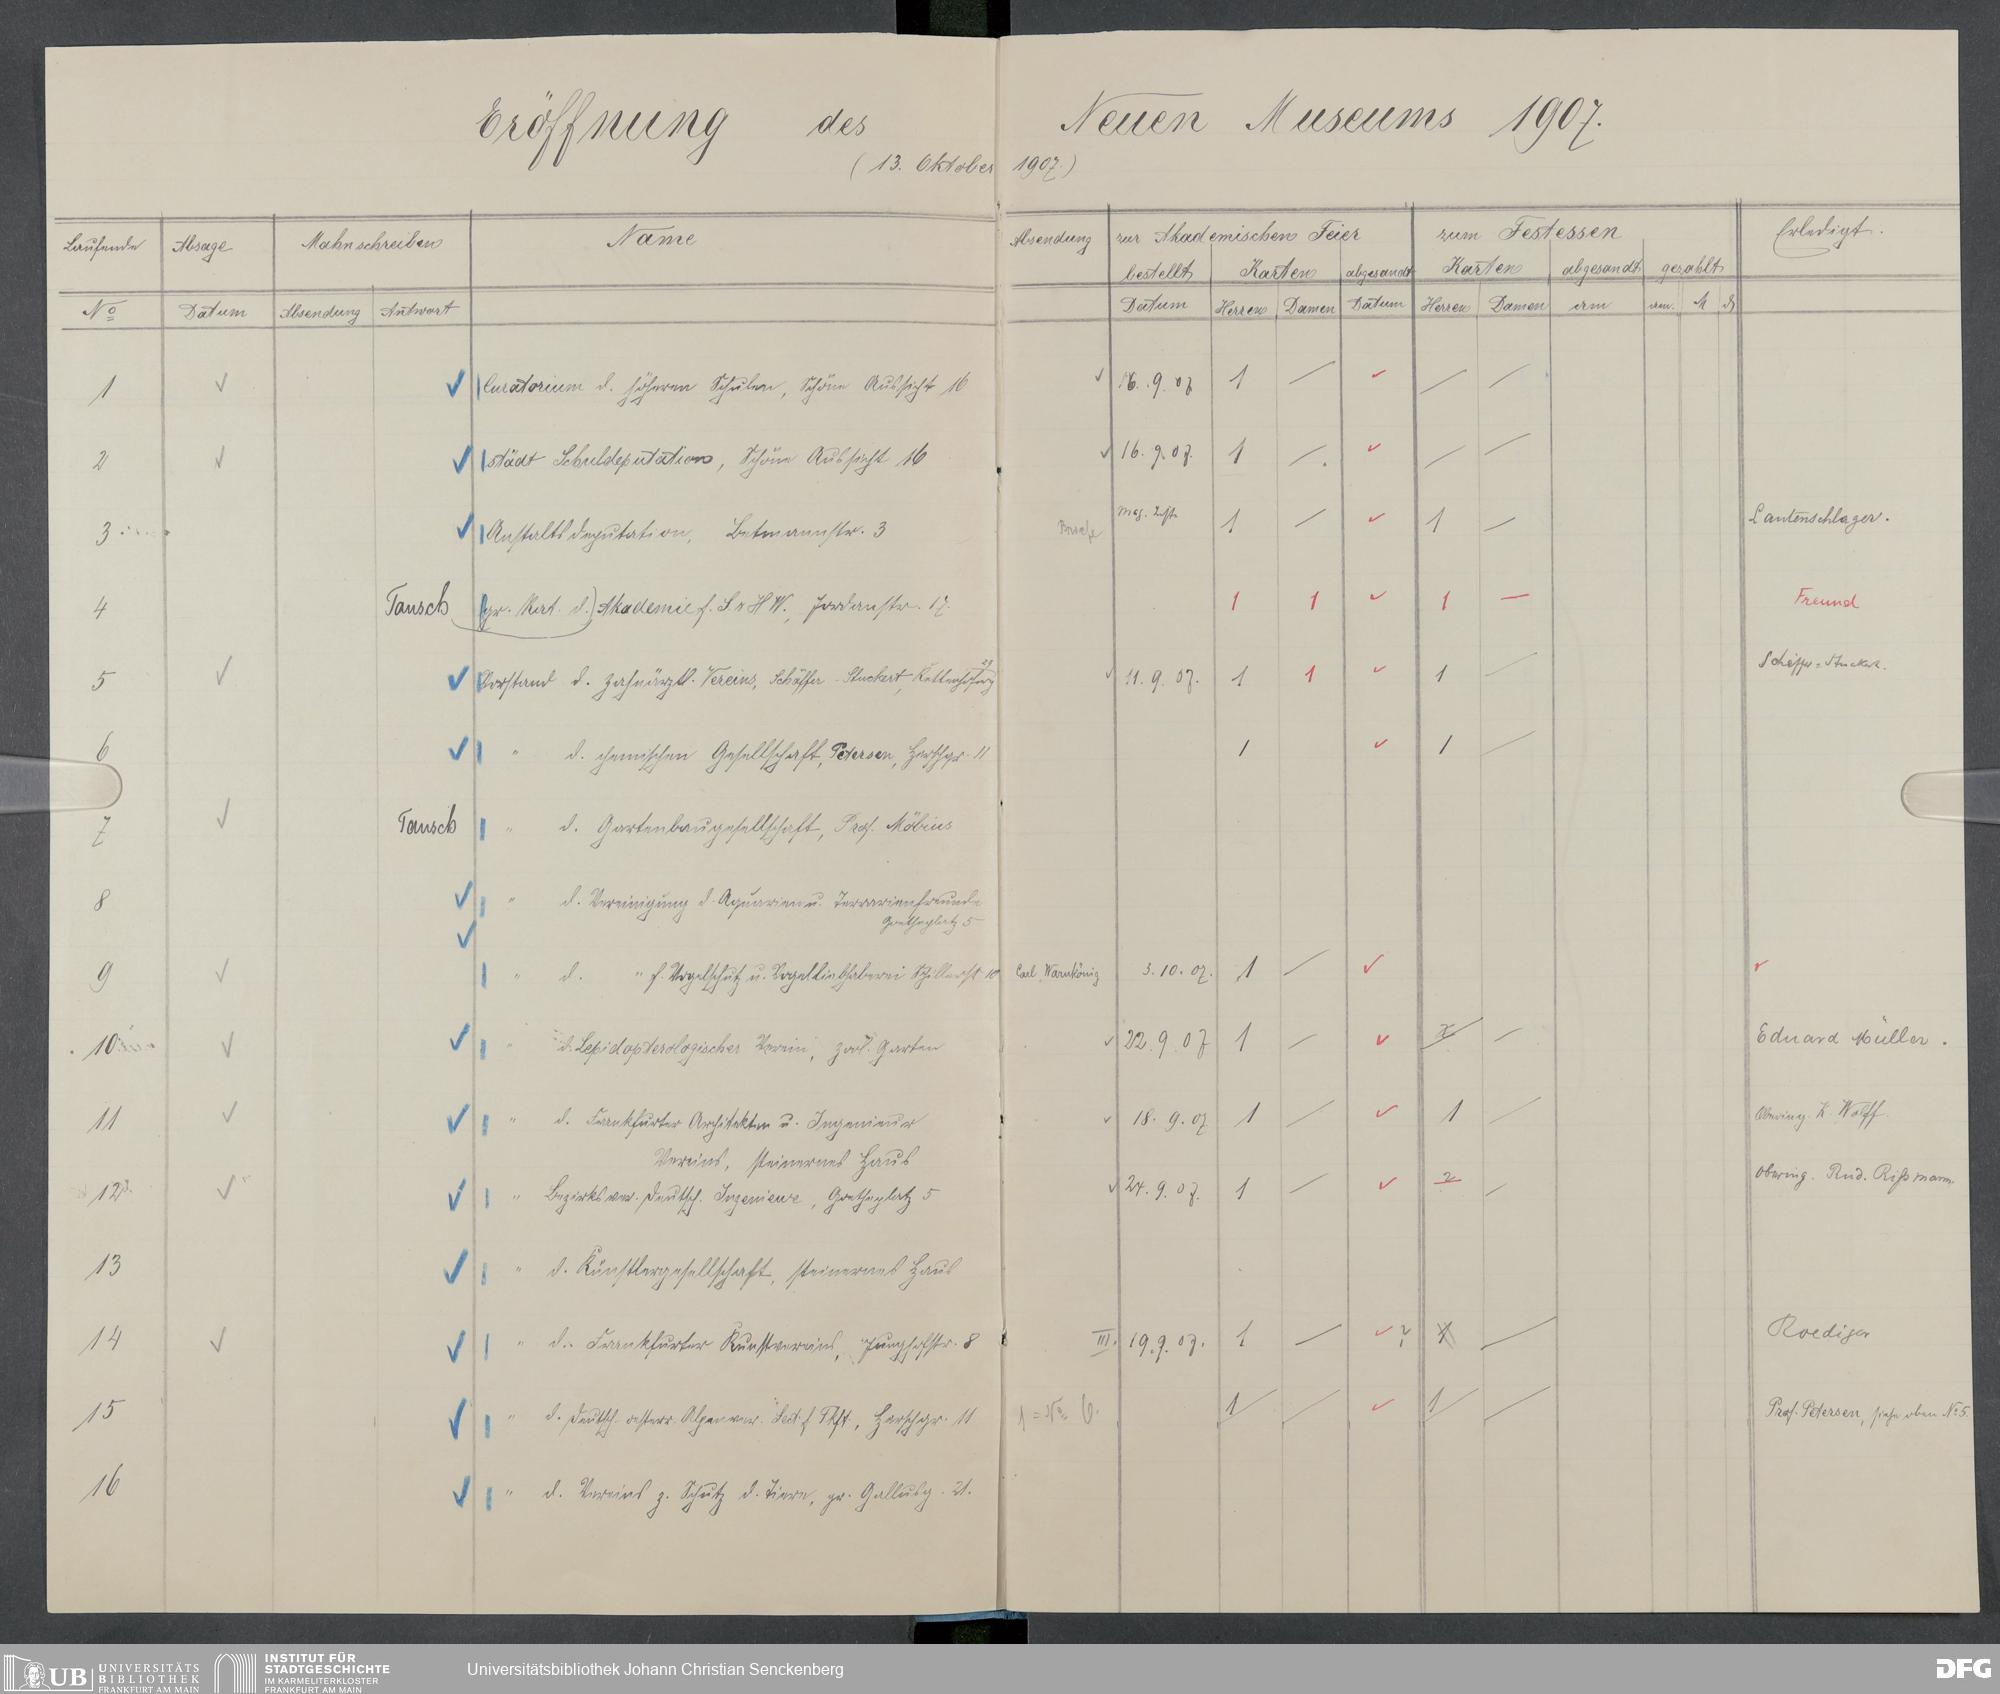 Eröffnung des Neuen Museums 1907.
(13. Oktober 1907.)
Laufende Absage Mahnschreiben Name Absendung zur Akademischen Feier zum Festessen Erledigt.
bestellt Karten abgesandt Karten abgesandt gezahlt
No Datum Absendung Antwort Datum Herren Damen Datum Herren Damen am am. M
1 ✓ ✓ Curatorium d. höheren Schulen, Schöne Aussicht 16 ✓ 16. 9. 07 1 / ✓ / /
2 ✓ ✓ städt Schuldeputation, Schöne Aussicht 16 ✓ 16. 9. 07. 1 / ✓ / /
3 ✓ Anstaltsdeputation, Betmannstr. 3 1 / ✓ 1 / Lautenschlager.
4 Tausch (gr. Rat. d.) Akademie f. S. u H W., Jordanstr. 17. 1 1 ✓ 1 — Freund
5 ✓ ✓ Vorstand d. zahnärztl. Vereins, Schäffer-Stuckert, 29 ✓ 11. 9. 07. 1 1 ✓ 1 / Schäffer-Stuckert.
6 ✓ " d. chemischen Gesellschaft, Petersen, Hersthgr. 11 1 ✓ 1 /
7 ✓ Tausch " d. Gartenbaugesellschaft, Prof. Möbius
8 ✓ " d. Vereinigung d. Aquarien u. Terrarienfreunde
Goetheplatz 5
9 ✓ ✓ " d. " f. Vogelschutz u. Vogelliebhaberei Schillerstr 10 Carl Warnkönig 3. 10. 07. 1 / ✓ ✓
10 ✓ ✓ " d. Lepidopterologischer Verein, zool. Garten ✓ 22. 9. 07 1 / ✓ / Eduard Müller.
11 ✓ ✓ " d. Frankfurter Architekten u. Ingenieur ✓ 18. 9. 07 1 / ✓ 1 / Obering. K. Wolff.
Vereins, steinernes Haus
12 ✓ ✓ " Bezirksver. deutsch. Ingenieure, Goetheplatz 5 ✓ 24. 9. 07. 1 / ✓ 2 / Obering. Rud. Rißmann.
13 ✓ " d. Künstlergesellschaft, steinernes Haus
14 ✓ ✓ " d. Frankfurter Kunstvereins, Junghofstr. 8 III. 19. 9. 07. 1 — ✓ ? 1 / Roediger
15 ✓ " d. deutsch-oesterr. Alpenver. Sect. f Fkft., Hersthgr. 11 1 = No 6. 1 / ✓ 1 / Prof. Petersen, siehe oben No 5.
16 ✓ " d. Vereins z. Schutz d. Tiere, gr. Gallusg. 21.
UB UNIVERSITÄTS
BIBLIOTHEK
FRANKFURT AM MAIN
INSTITUT FÜR
STADTGESCHICHTE
IM KARMELITERKLOSTER
FRANKFURT AM MAIN
Universitätsbibliothek Johann Christian Senckenberg
DFG